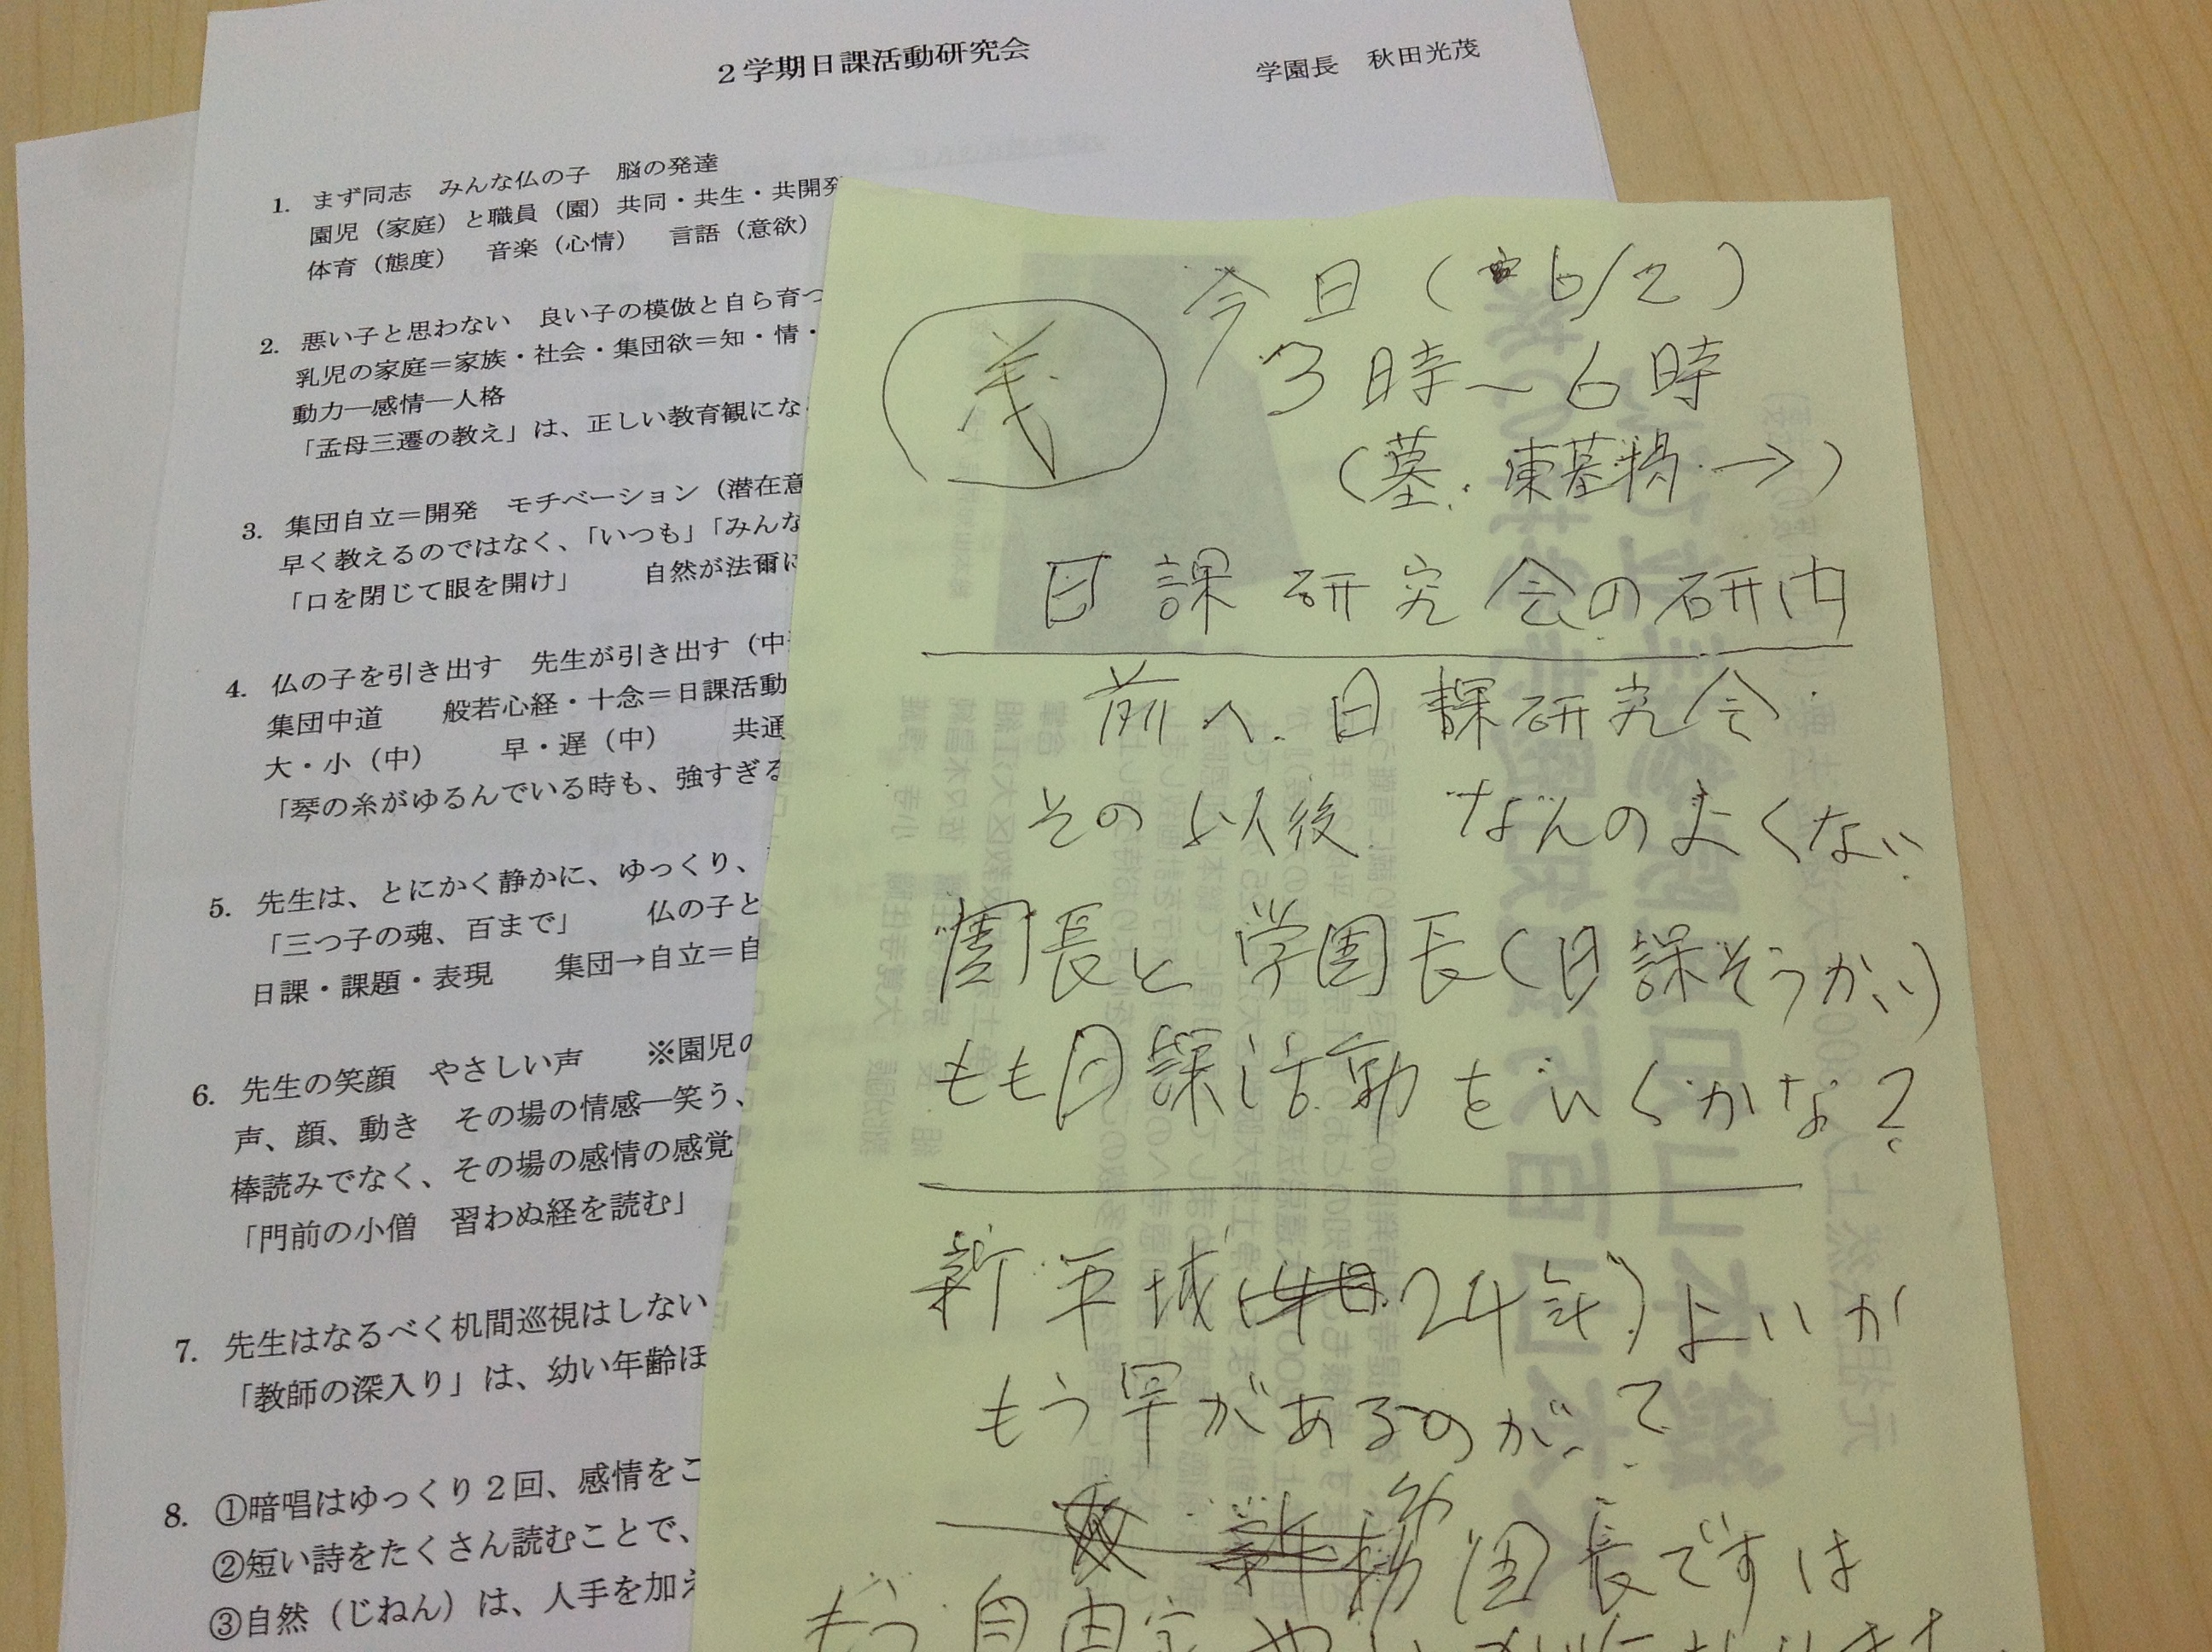 2学期日課活動研究会
学園長 秋田光茂
1. まず同志 みんな仏の子 脳の発達
園児（家庭）と職員（園）共同・共生・共開発
体育（態度） 音楽（心情） 言語（意欲）
2. 悪い子と思わない 良い子の模倣と自ら育つ
乳児の家庭＝家族・社会・集団欲＝知・情・
動力―感情―人格
「孟母三遷の教え」は、正しい教育観にな
3. 集団自立＝開発 モチベーション（潜在意
早く教えるのではなく、「いつも」「みんな
「口を閉じて眼を開け」 自然が法爾に
4. 仏の子を引き出す 先生が引き出す（中
集団中道 般若心経・十念＝日課活動
大・小（中） 早・遅（中） 共通
「琴の糸がゆるんでいる時も、強すぎる
5. 先生は、とにかく静かに、ゆっくり、
「三つ子の魂、百まで」 仏の子と
日課・課題・表現 集団→自立＝自
6. 先生の笑顔 やさしい声 ※園児の
声、顔、動き その場の情感―笑う、
棒読みでなく、その場の感情の感覚
「門前の小僧 習わぬ経を読む」
7. 先生はなるべく机間巡視はしない
「教師の深入り」は、幼い年齢ほ
8. ①暗唱はゆっくり2回、感情をこ
②短い詩をたくさん読むことで、
③自然（じねん）は、人手を加え
茂
今日（6/2）
3時～6時
（墓.東基 →）
日課研究会の研内
前へ.日課研究会
その以後 なんのよくない
園長と学園長（日課そうかい）
もも日課活動をいくかな？
新平城 24年）よいか
もう罕があるのが、？
園長ですは
もう自由